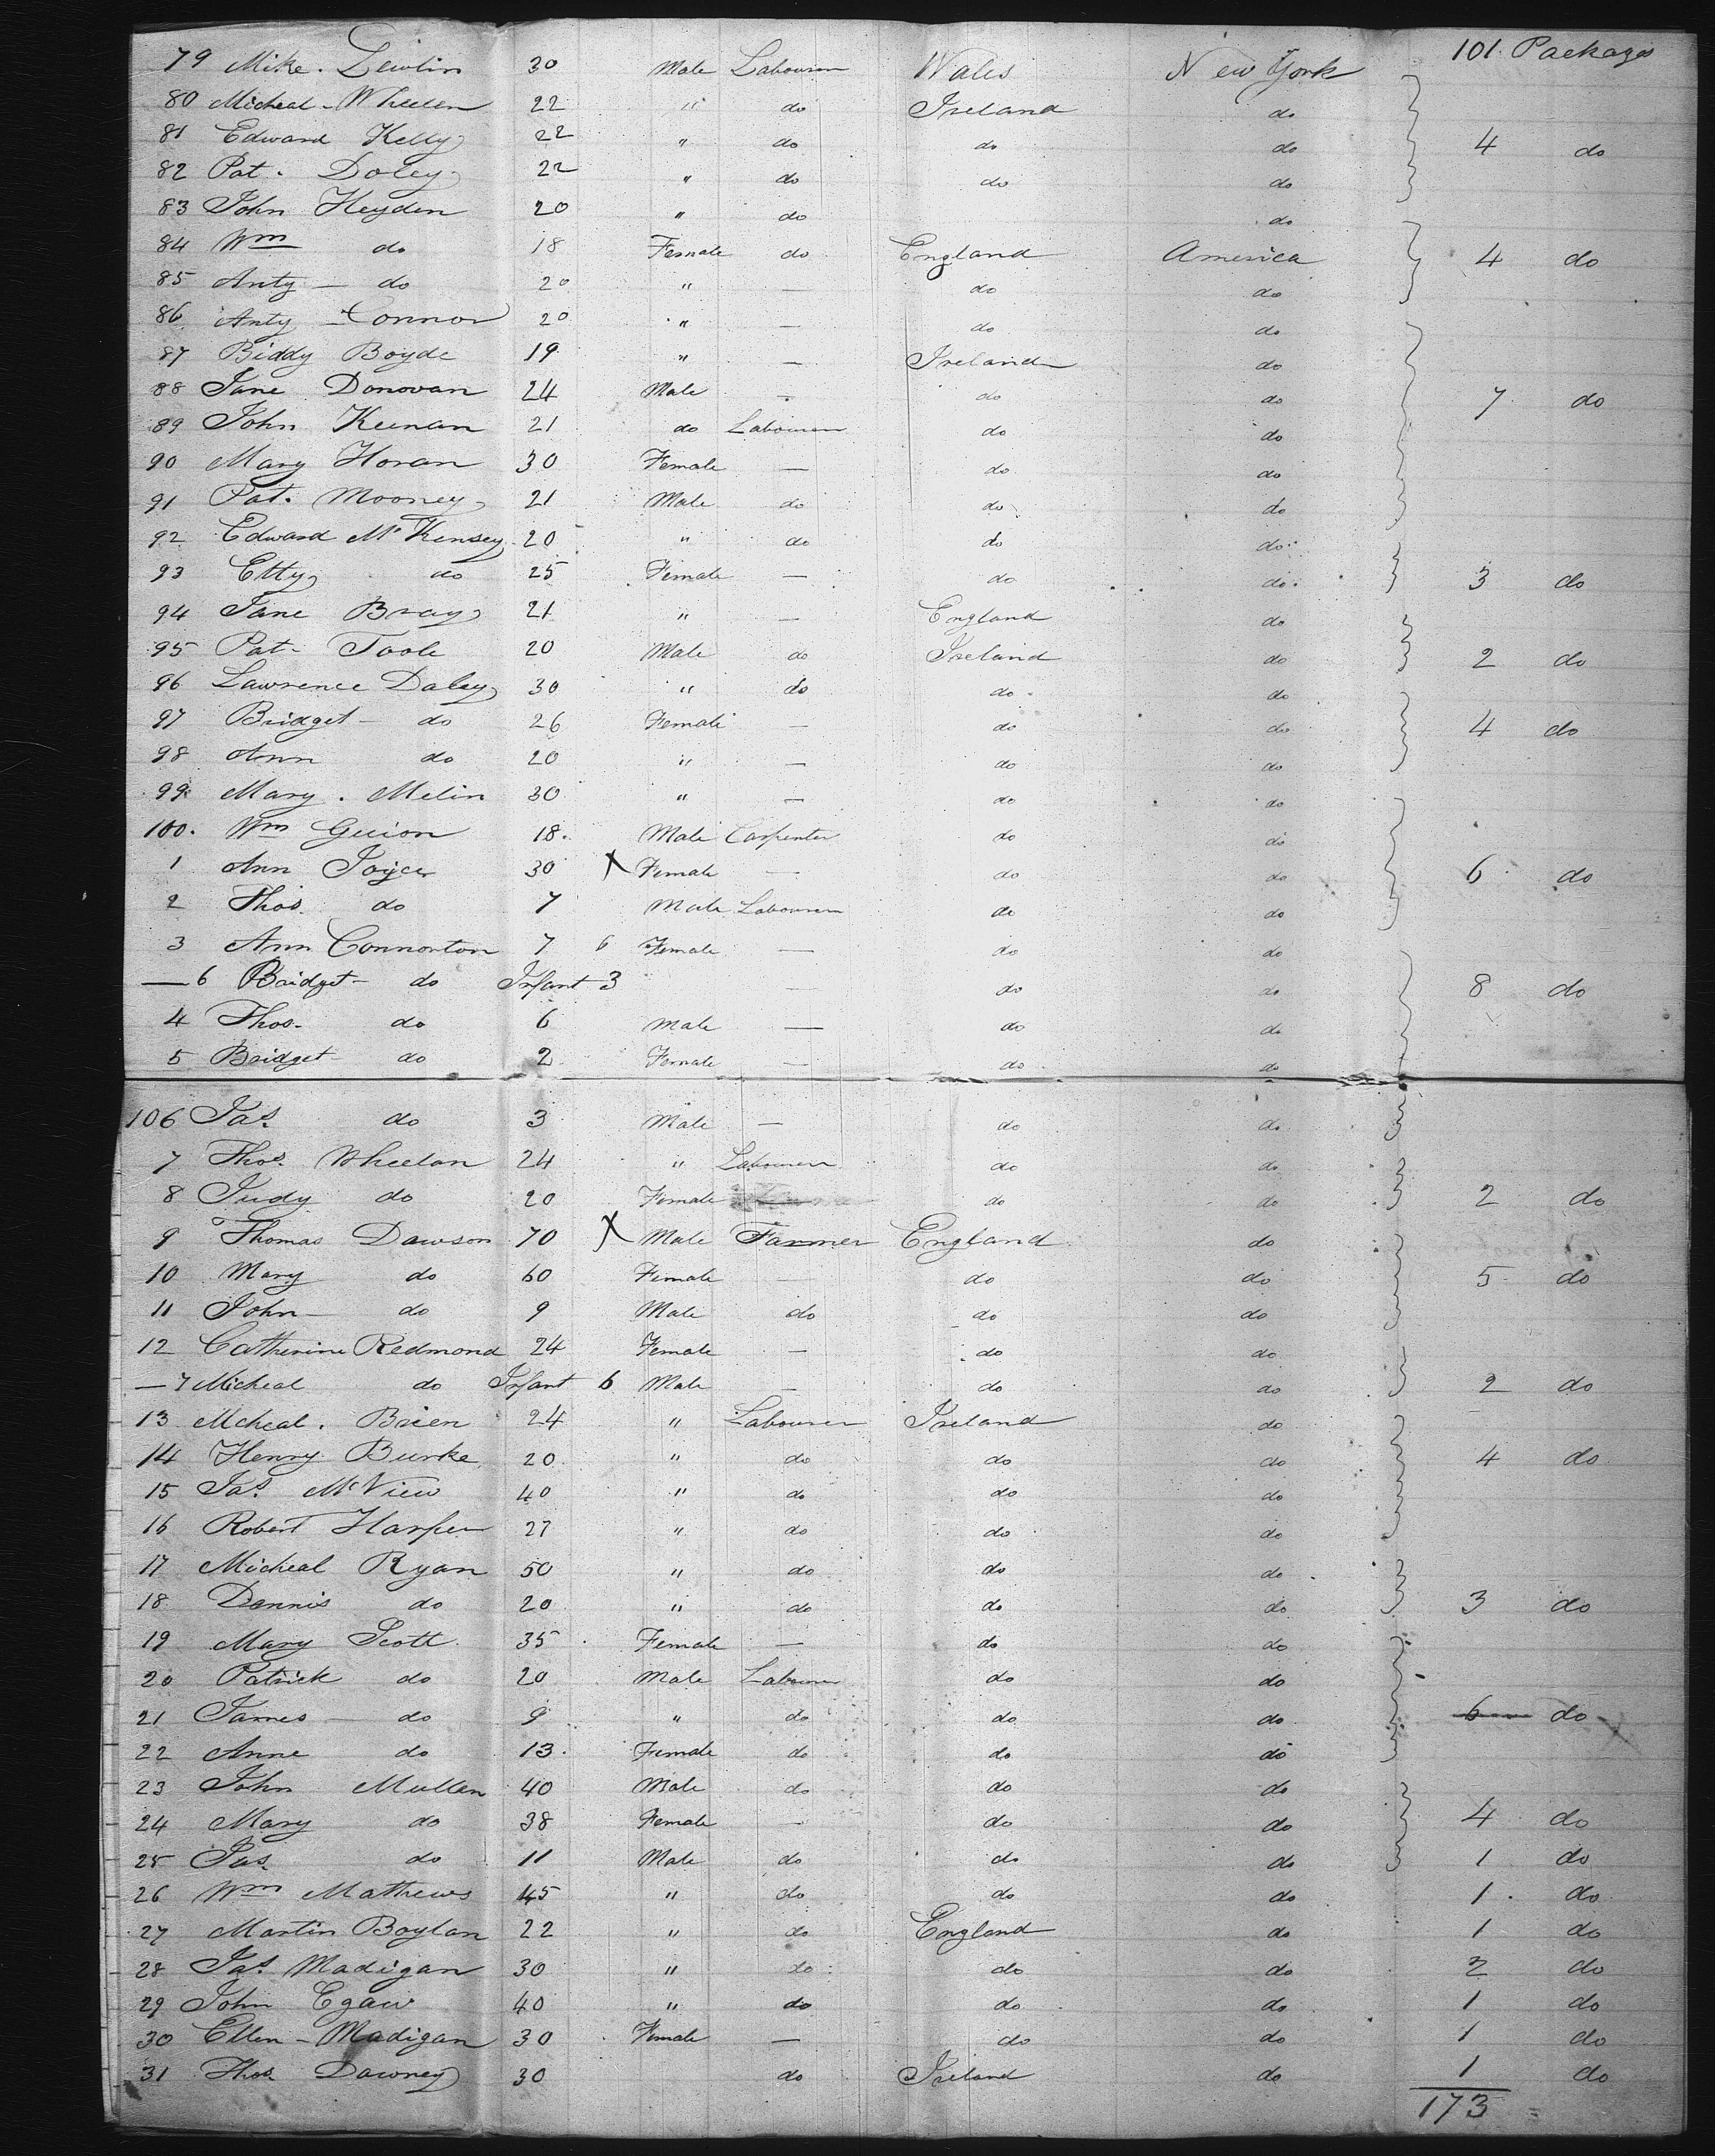 101 Packages
79 Mike. Lewlin 30 Male Labourer Wales New York
80 Micheal - Wheelen 22 " do Ireland do
81 Edward Kelly 22 " do do do 4 do
82 Pat. Doley 22 " do do do
83 John Heyden 20 " do do
84 Wm do 18 Female do England America 4 do
85 Anty - do 20 " — do do
86 Anty - Connor 20 " — do do
87 Biddy Boyde 19 " — Ireland do
88 Jane Donovan 24 Male — do do 7 do
89 John Keenan 21 do Labourer do do
90 Mary Horan 30 Female — do do
91 Pat. Mooney 21 Male do do do
92 Edward McKensey 20 " do do do
93 Etty do 25 Female — do do 3 do
94 Jane Bray 21 " — England do
95 Pat - Toole 20 Male do Ireland do 2 do
96 Lawrence Daley 30 " do do do
97 Bridget - do 26 Female — do do 4 do
98 Ann do 20 " — do do
99 Mary . Melin 30 " — do do
100. Wm Guion 18. Male Carpenter do do
1 Ann Joyce 30 X Female — do do 6 do
2 Thos. do 7 Male Labourer do do
3 Ann Connorton 7 6 Female — do do
— 6 Bridget - do Infant 3 — do do 8 do
4 Thos. do 6 Male — do do
5 Bridget do 2 Female — do do
106 Jas. do 3 Male — do do
7 Thos. Wheelan 24 " Labourer do do
8 Judy do 20 Female — do do 2 do
9 Thomas Dawson 70 X Male Farmer England do
10 Mary do 60 Female — do do 5 do
11 John - do 9 Male do do do
12 Catherine Redmond 24 Female — do do
— 7 Micheal do Infant 6 Male — do do 2 do
13 Micheal. Brien 24 " Labourer Ireland do
14 Henry Burke 20 " do do do 4 do
15 Jas. McView 40 " do do do
16 Robert Harper 27 " do do do
17 Micheal Ryan 50 " do do do
18 Dennis do 20 " do do do 3 do
19 Mary Scott 35 Female — do do
20 Patrick do 20 Male Labourer do do
21 James — do 9 " do do do 6 do
22 Anne do 13. Female do do do
23 John Mullen 40 Male do do do
24 Mary do 38 Female — do do 4 do
25 Jas. do 11 Male do do do 1 do
26 Wm Mathews 45 " do do do 1 do
27 Martin Boylan 22 " do England do 1 do
28 Jas. Madigan 30 " do do do 2 do
29 John Egaw 40 " do do do 1 do
30 Ellen - Madigan 30 Female — do do 1 do
31 Thos. Dawney 30 do Ireland do 1 do
173